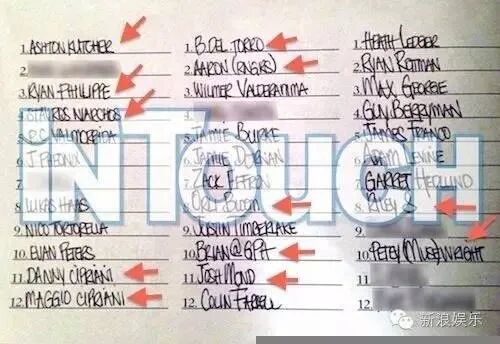 1. ASHTON KUTCHER
2.
3. RYAN PHILIPPE
4. STAVROS NIARCHOS
5. P.C. VALMORBIDA
6. J. PHENIX
7.
8. LUKAS HAAS
9. NICO TORTORELLA
10. EVAN PETERS
11. DANNY CIPRIANI
12. MAGGIO CIPRIANI
1. B. DEL TORRO
2. AARON
3. WILMER VALDERAMA
4.
5. JAMIE BURKE
6. JAMIE DORNAN
7. ZACK EFFRON
8. ORLY BLOOM
9. JUSTIN TIMBERLAKE
10. BRIAN@GPA
11. JOSH MOND
12. COLIN FARRELL
1. HEATH LEDGER
2. RYAN ROTTMAN
3. MAX GEORGE
4. GUY BERRYMAN
5. JAMES FRANCO
6. ADAM LEVINE
7. GARRET HEDLUND
8. RILEY S
9.
10. PETEY WRIGHT
11.
12.
INTOUCH
新浪娱乐